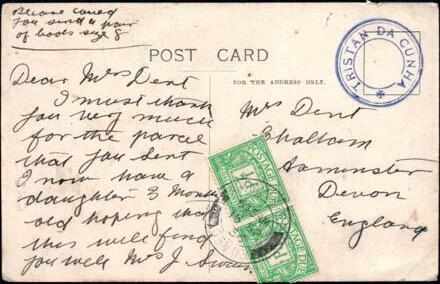 Please could
you send a pair
of boots size 8
POST CARD
FOR THE ADDRESS ONLY.
TRISTAN DA CUNHA
Dear Mrs Dent
I must thank
you very much
for the parcel
that you sent
I now have a
daughter 3 Months
old hoping that
this will find
you well Mrs J. Swain
Mrs Dent
Axminster
Devon
England
POSTAGE DUE
POSTAGE DUE